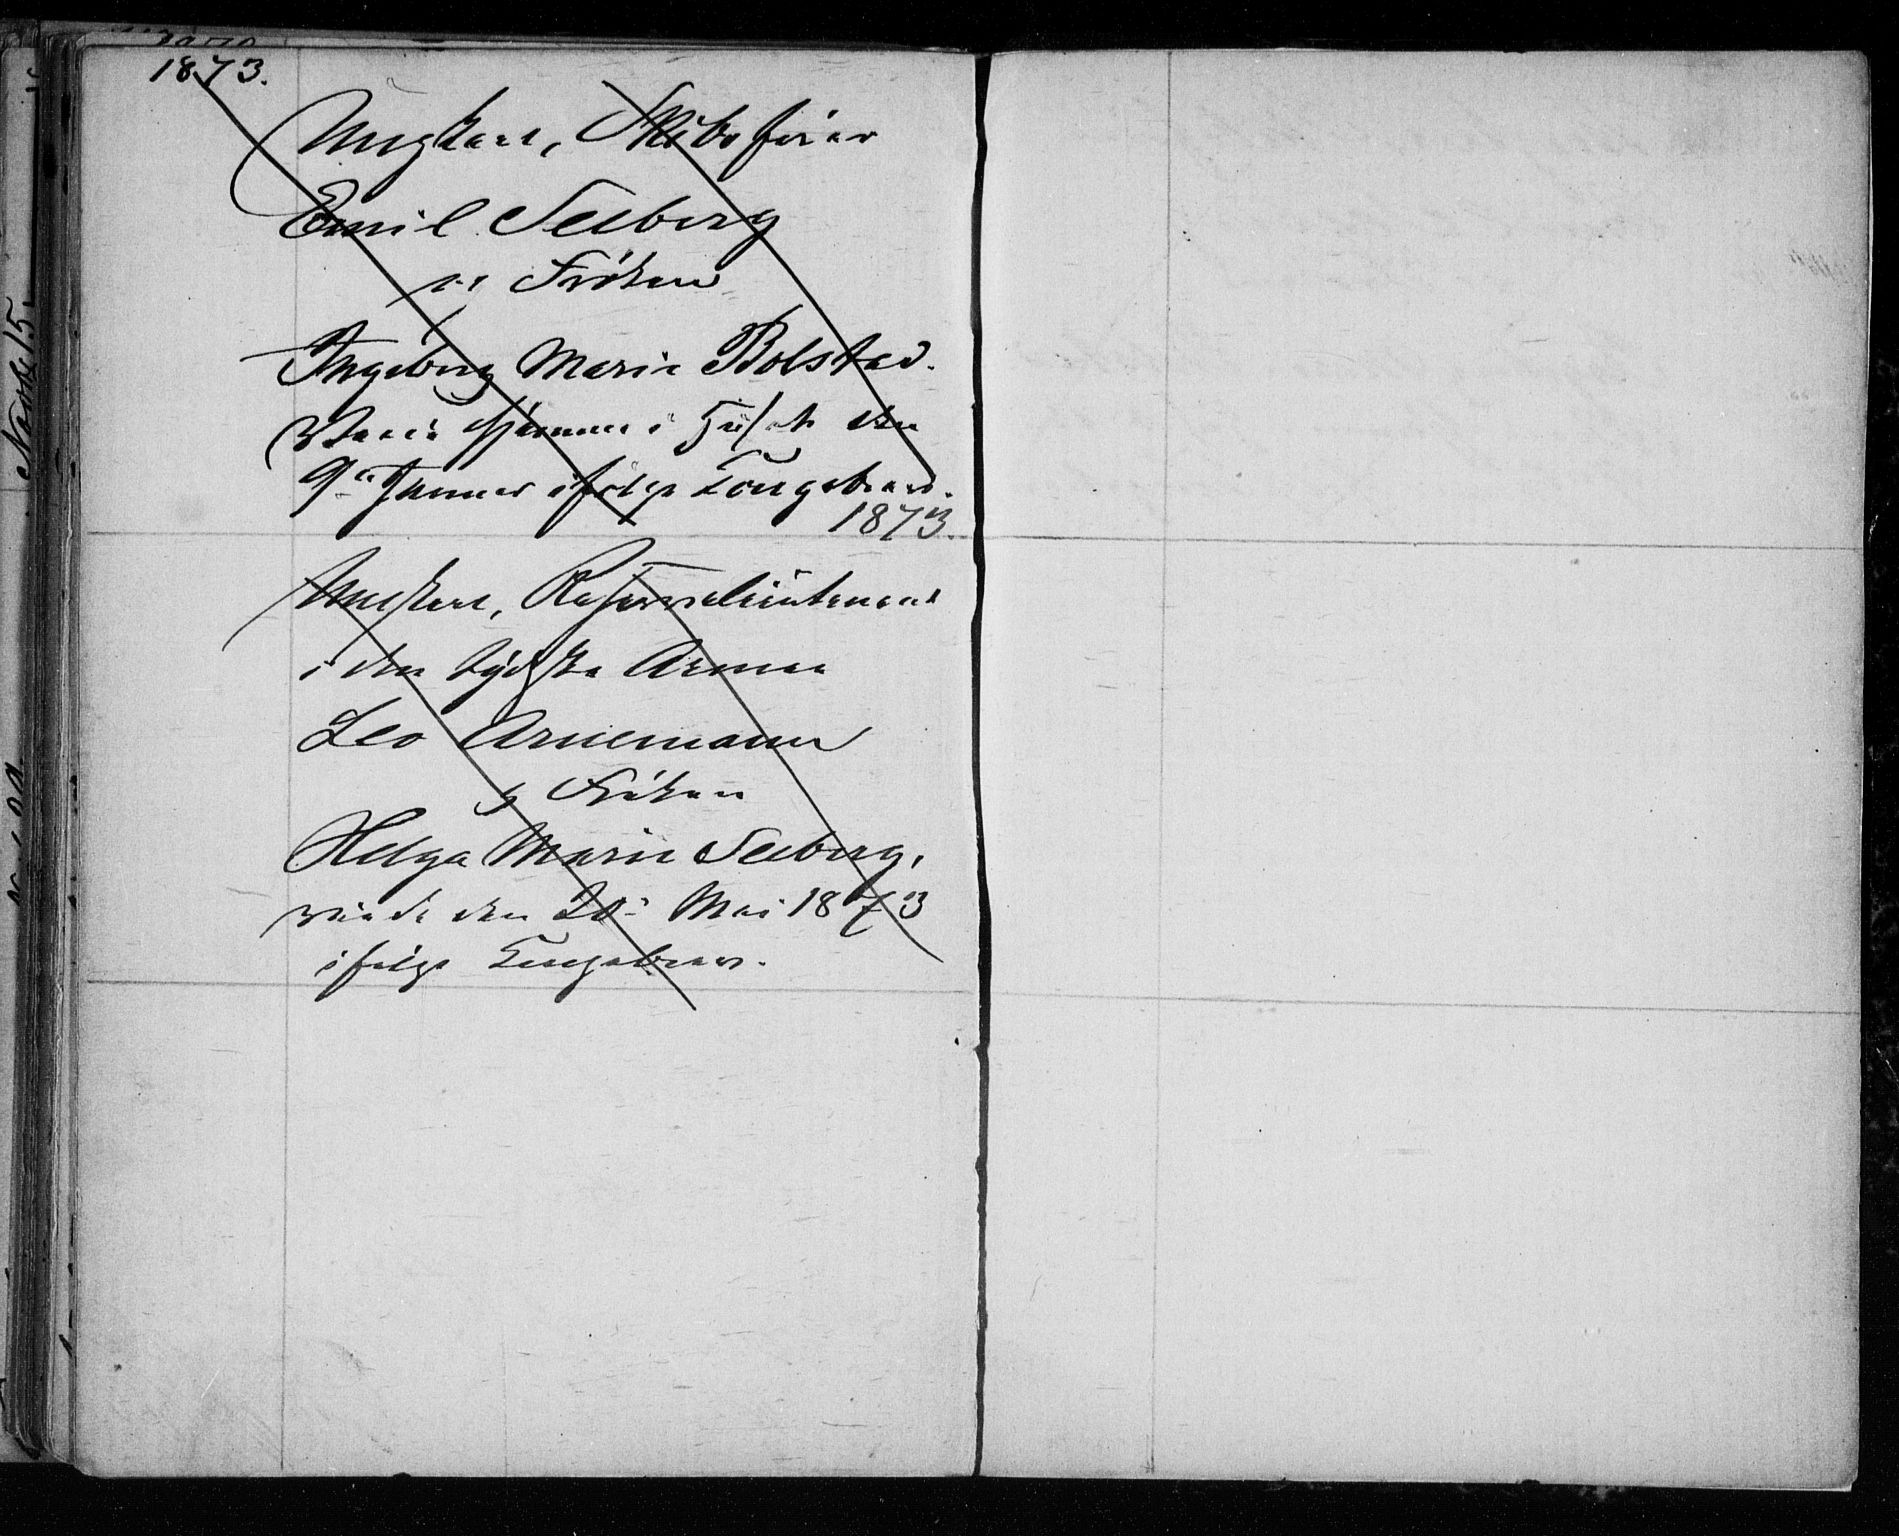 1873.
Ungkarl, Skibsfører
Emil Seeberg
og Frøken
Ingeborg Marie Bolstad.
Viede hjemme i Huset den
9de Januar ifølge Kongebrev.
1873.
Ungkarl, Reservelieutenant
i den tydske Armee
Leo Arnemann
og Frøken
Helga Marie Seeberg,
viede den 20de Mai 1873
ifølge Kongebrev.